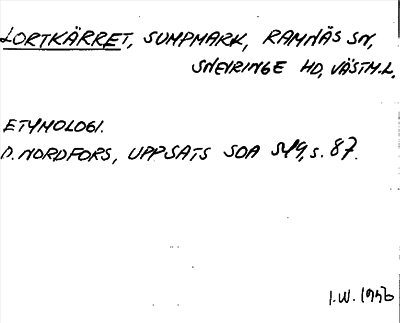 LORTKÄRRET, SUMPMARK, RAMNÄS SN,
SNEVRINGE HD, VÄSTM.L.
ETYMOLOGI.
D. NORDFORS, UPPSATS SOA 549, s. 87.
I.W. 1956